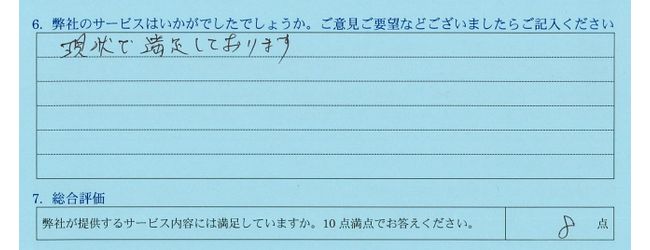 6. 弊社のサービスはいかがでしたでしょうか。ご意見ご要望などございましたらご記入ください
現状で満足しております
7. 総合評価
弊社が提供するサービス内容には満足していますか。10点満点でお答えください。 8 点